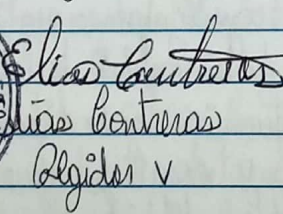 Elias Contreras
Elias Contreras
Regidor V